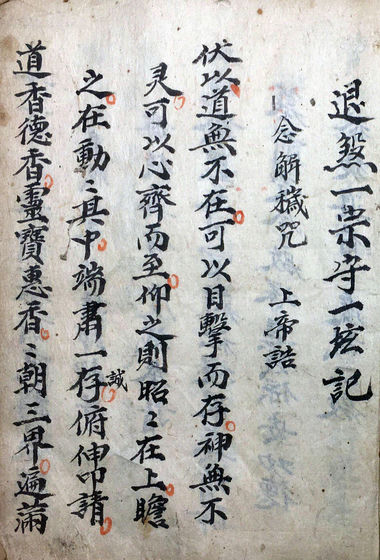 退煞一宗字一坛記
一念解穢咒 上帝誥
伏以道無不在可以目擊而存神無不
灵可以心齊而至仰之則昭〻在上瞻
之在動〻其中端肅一誠存俯伸叩請
道香德香靈寶惠香〻朝三界遍滿